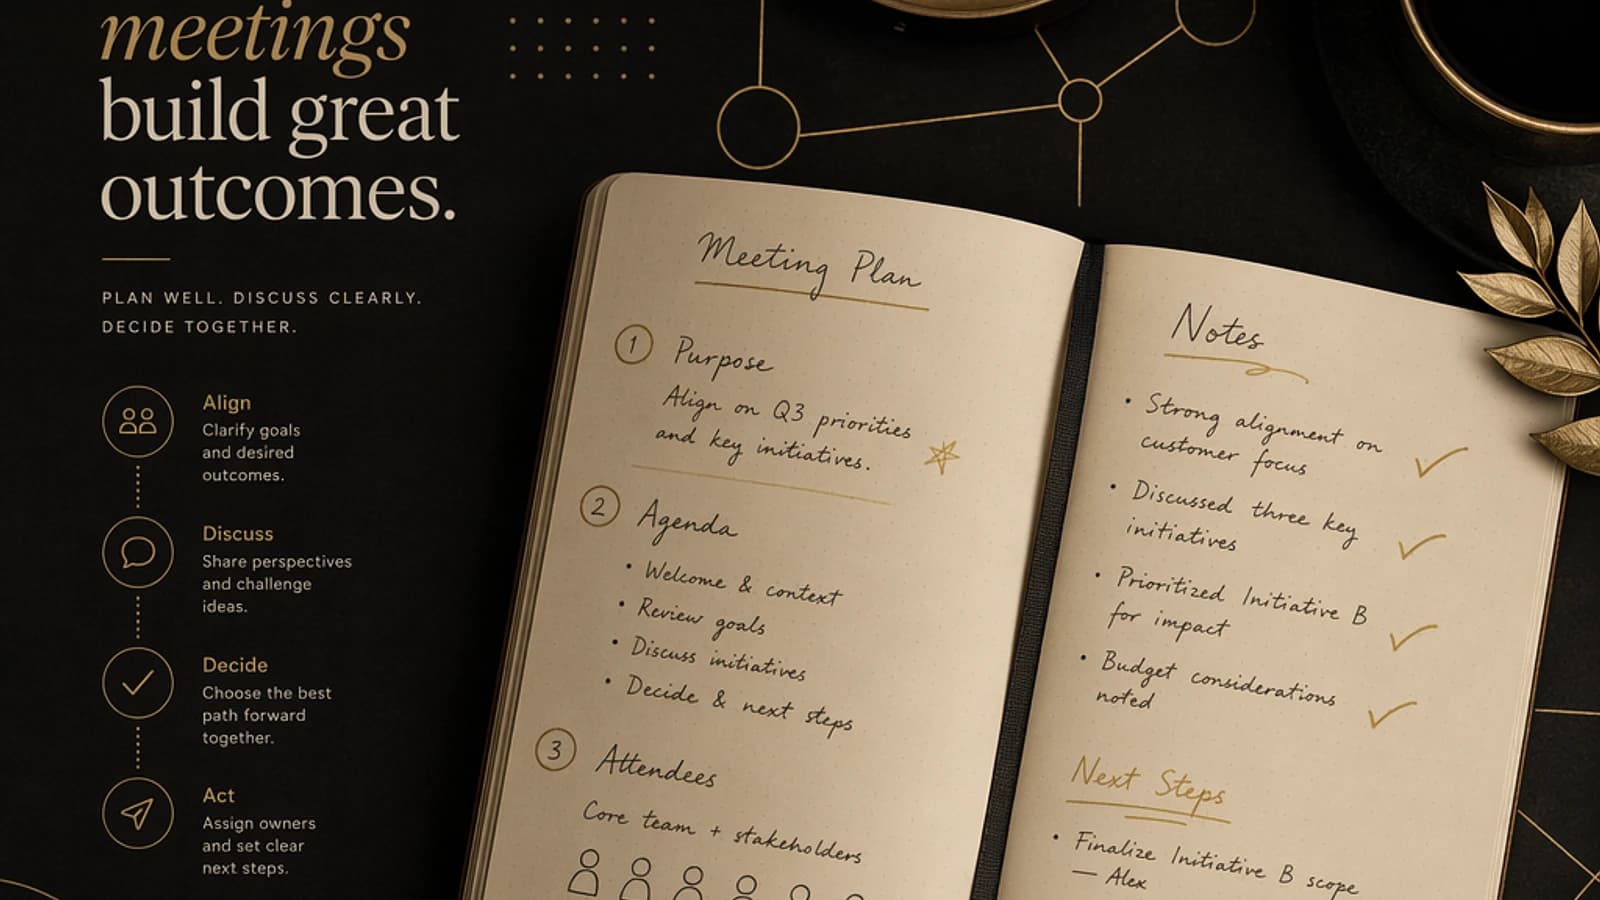 meetings
build great
outcomes.
PLAN WELL. DISCUSS CLEARLY.
DECIDE TOGETHER.
Align
Clarify goals
and desired
outcomes.
Discuss
Share perspectives
and challenge
ideas.
Decide
Choose the best
path forward
together.
Act
Assign owners
and set clear
next steps.
Meeting Plan
1 Purpose
Align on Q3 priorities
and key initiatives.
2 Agenda
• Welcome & context
• Review goals
• Discuss initiatives
• Decide & next steps
3 Attendees
Core team + stakeholders
Notes
• Strong alignment on
customer focus
• Discussed three key
initiatives
• Prioritized Initiative B
for impact
• Budget considerations
noted
Next Steps
• Finalize Initiative B scope
— Alex